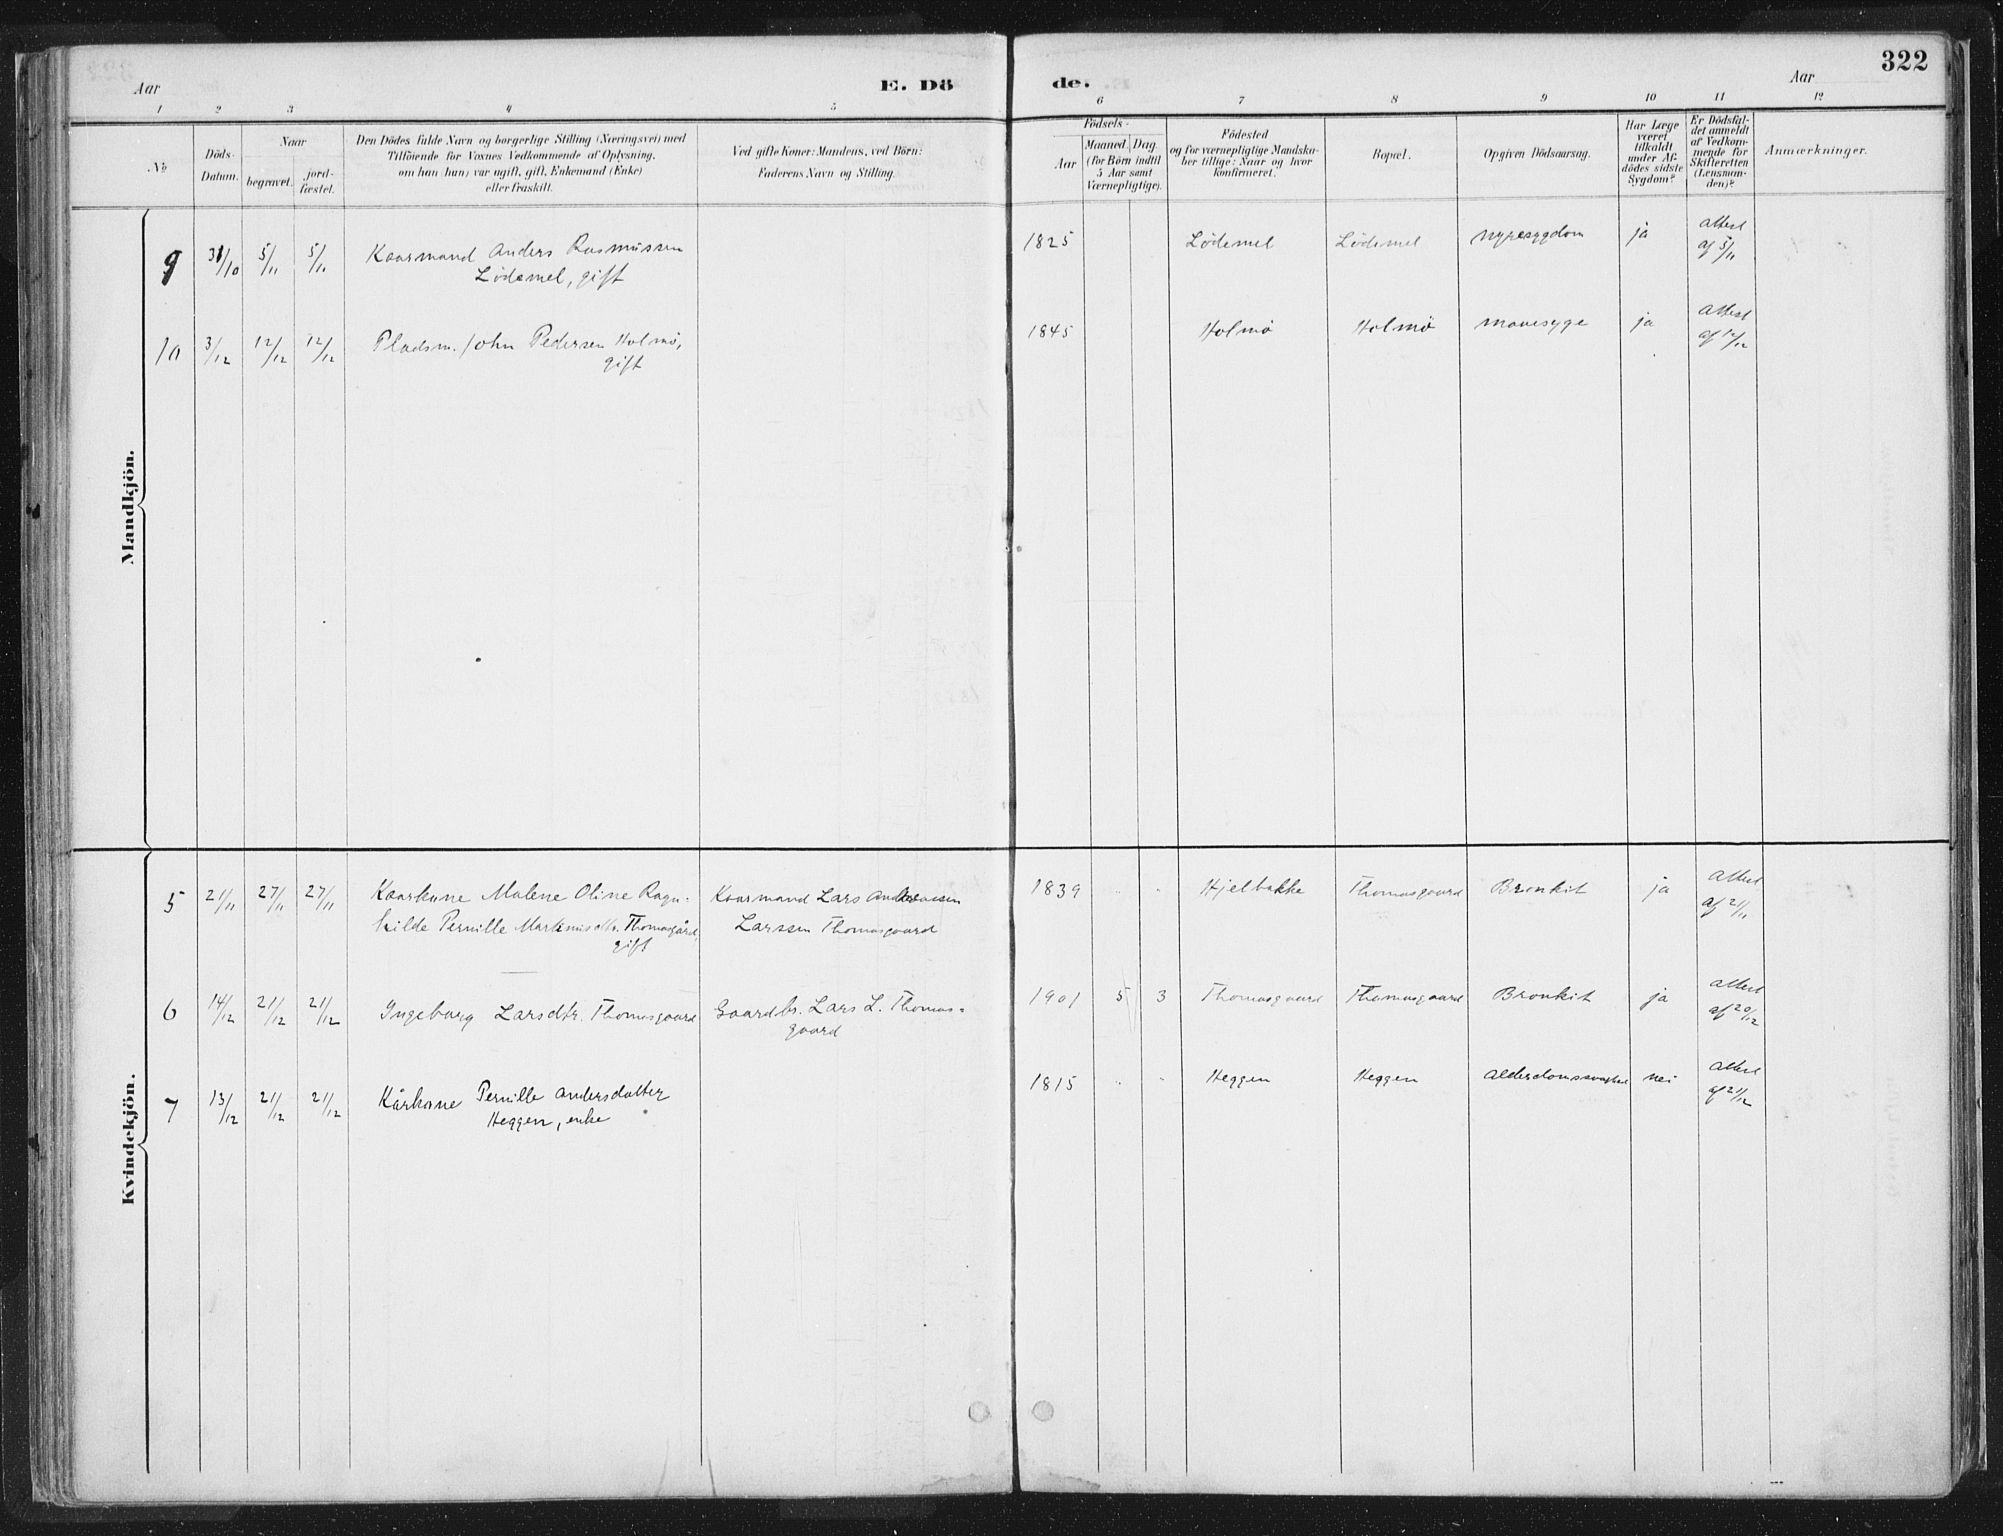 322
Aar
E. Dö
de.
Aar
1 2 3 4 5 6 7 8 9 10 11 12
No
Döds-
Datum.
Naar
begravet.
jord-
fæstet.
Den Dödes fulde Navn og borgerlige Stilling (Næringsvei) med
Tilföiende for Voxnes Vedkommende af Oplysning,
om han (hun) var ugift, gift, Enkemand (Enke)
eller fraskilt.
Ved gifte Koner: Mandens, ved Börn:
Faderens Navn og Stilling.
Födsels-
Aar
Maaned. Dag.
(for Börn indtil
5 Aar samt
Værnepligtige).
Födested
og for værnepligtige Mandska-
ber tillige: Naar og hvor
konfirmeret.
Bopæl.
Opgiven Dödsaarsag.
Har Læge
været
tilkaldt
under Af-
dödes sidste
Sygdom?
Er Dödsfal-
det anmeldt
af Vedkom-
mende for
Skifteretten
(Lensman-
den)?
Anmærkninger.
Mandkjön.
9 31/10 5/11 5/11 Kaarmand Anders Rasmussen 1825 Lødemel Lødemel nyresygdom ja attest
Lødemel, gift af 5/11
10 3/12 12/12 12/12 Pladsm. John Pedersen Holmø, 1845 Holmø Holmø mavesyge ja attest
gift af 12/12
Kvindekjön.
5 21/11 27/11 27/11 Kaarkone Malene Oline Ragn- Kaarmand Lars 1839 Hjelbakke Thomasgaard Bronkit ja attest
hilde Pernille Martinusdtr. Thomasgård, Larssen Thomasgaard af 21/11
gift
6 14/12 21/12 21/12 Ingeborg Larsdtr. Thomasgaard Gaardbr. Lars L. Thomas- 1901 5 3 Thomasgaard Thomasgaard Bronkit ja attest
gaard af 20/12
7 13/12 21/12 21/12 Kårkone Pernille Andersdatter 1815 Heggen Heggen alderdomssvaghed nei attest
Heggen, enke af 21/12